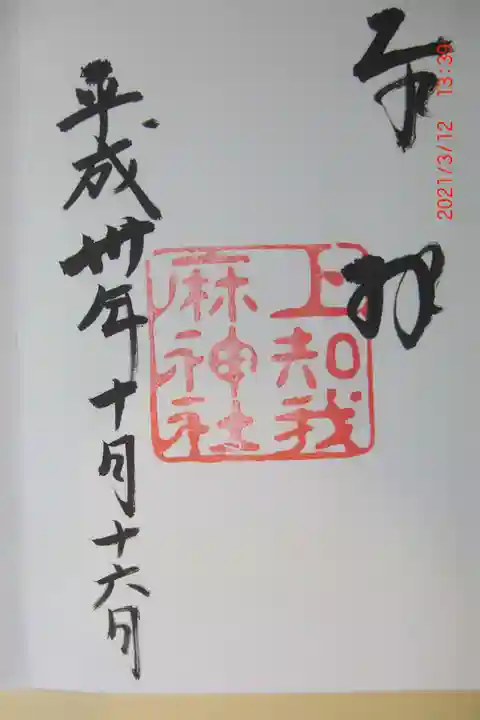 奉拝
上知我
麻神社
平成卅年十月十六日
2021/3/12 13:39